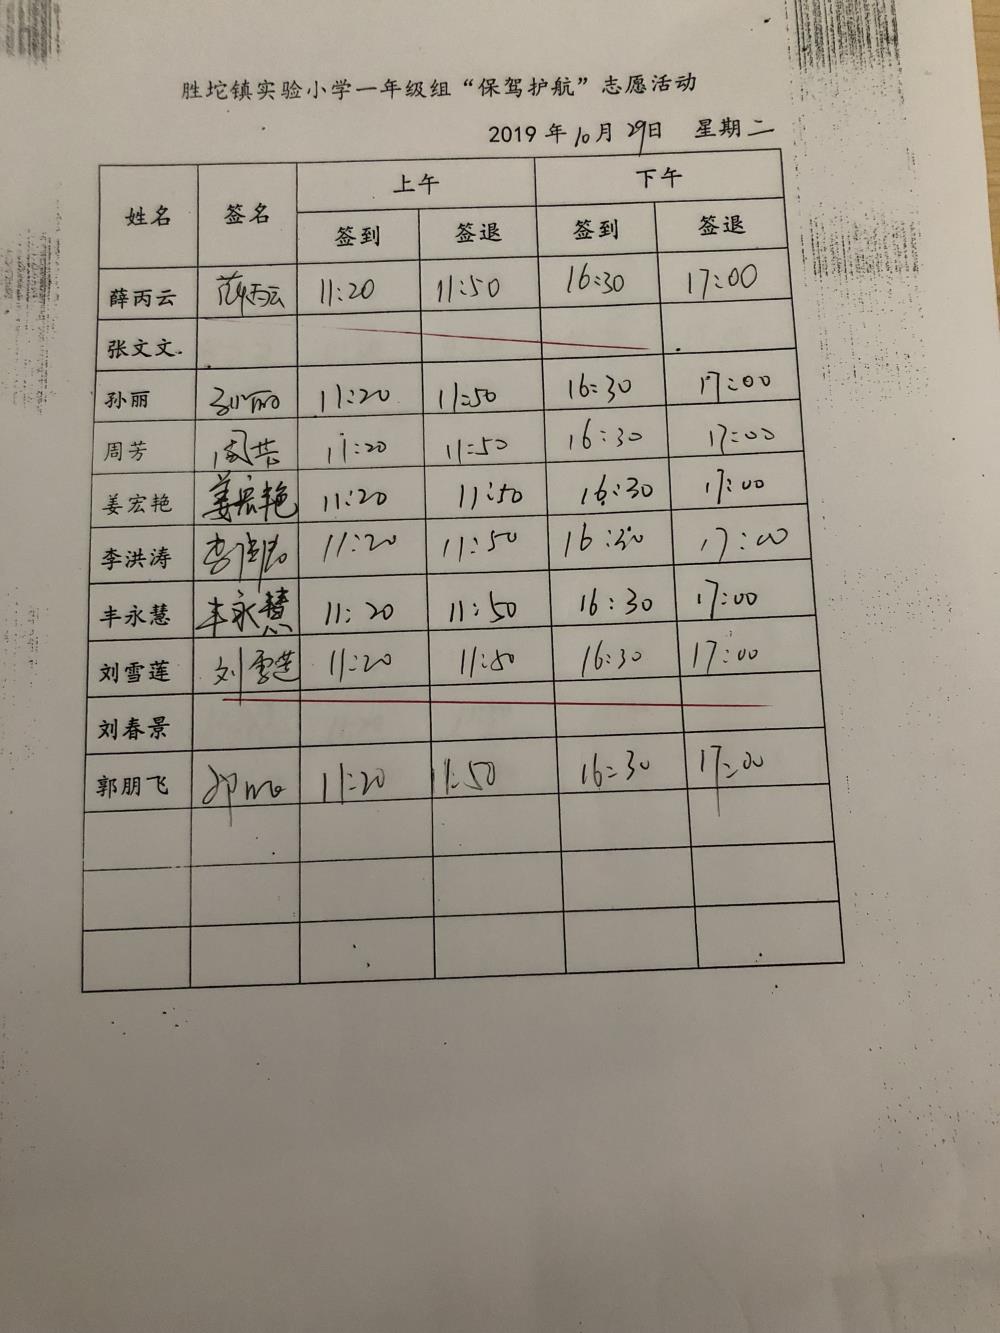 胜坨镇实验小学一年级组“保驾护航”志愿活动
2019 年 10 月 29日 星期二
姓名 签名 上午 下午
签到 签退 签到 签退
薛丙云 薛丙云 11:20 11:50 16:30 17:00
张文文
孙丽 孙丽 11:20 11:50 16:30 17:00
周芳 周芳 11:20 11:50 16:30 17:00
姜宏艳 姜宏艳 11:20 11:50 16:30 17:00
李洪涛 李洪涛 11:20 11:50 16:30 17:00
丰永慧 丰永慧 11:20 11:50 16:30 17:00
刘雪莲 刘雪莲 11:20 11:50 16:30 17:00
刘春景
郭朋飞 11:20 11:50 16:30 17:00